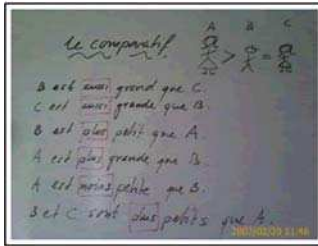 A B C
le comparatif
> =
B est aussi grand que C.
C est aussi grande que B.
B est plus petit que A.
A est plus grande que B.
A est moins petite que B.
B et C sont plus petits que A.
2007/02/20 11:46